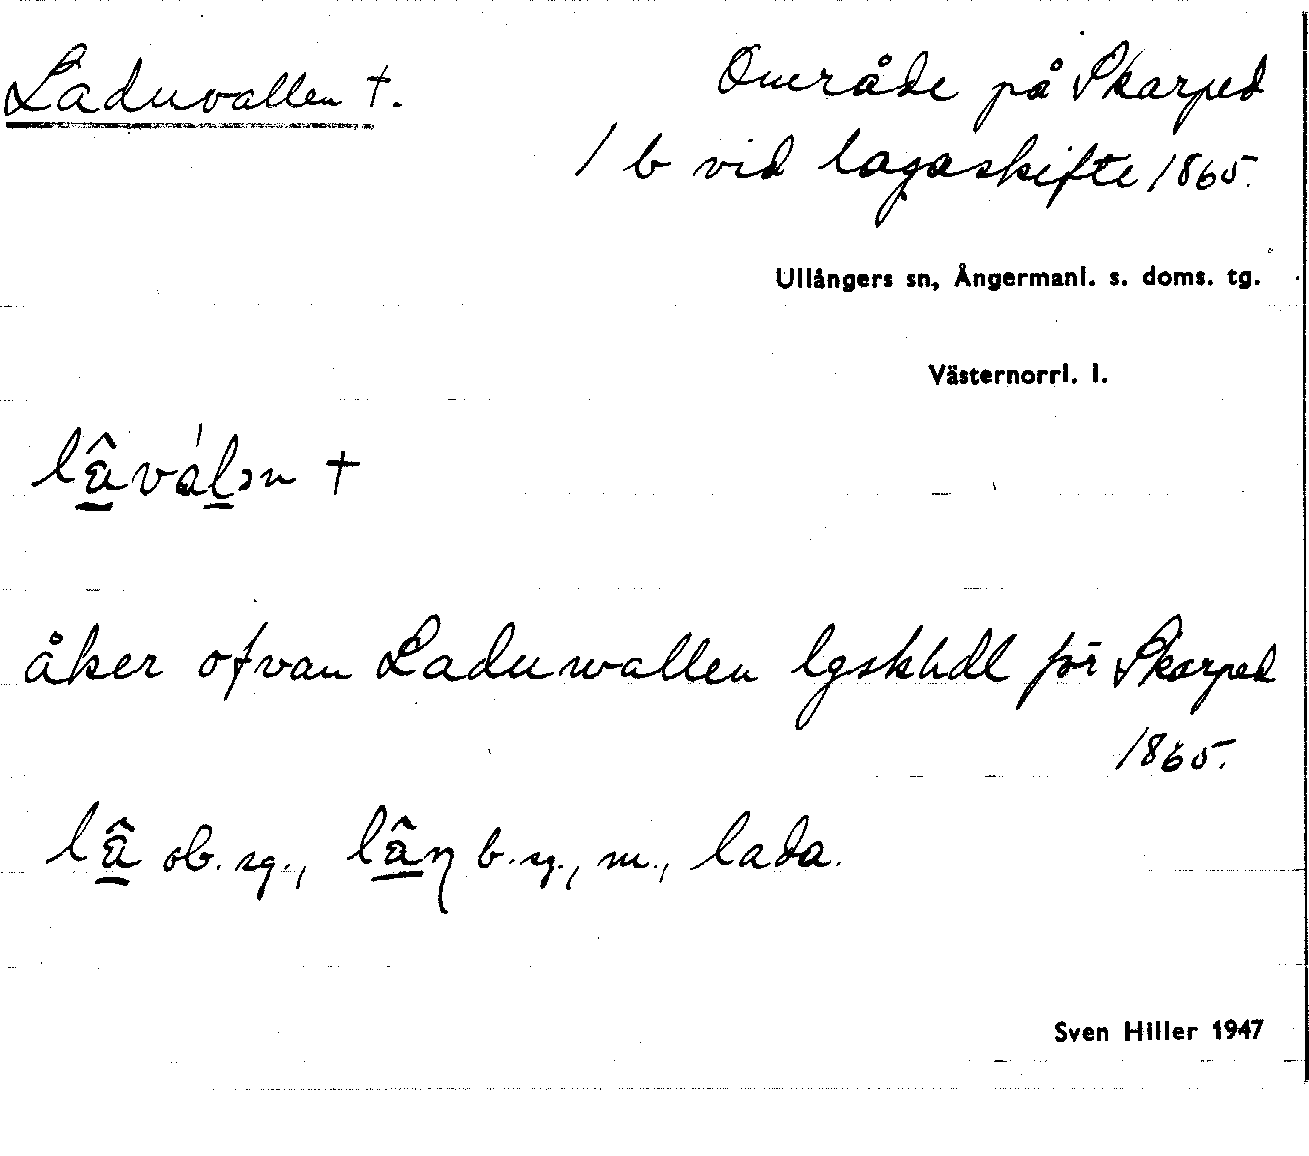 Laduvallen †.
Område på Skarped
1 b vid lagaskifte 1865.
Ullångers sn, Ångermanl. s. doms. tg.
Västernorrl. l.
lâ̱váḻən †
åker ofvan Laduwallen lgskhdl för Skarped
1865.
lâ̱ ob. sg., lâ̱ŋ b. sg., m., lada.
Sven Hiller 1947